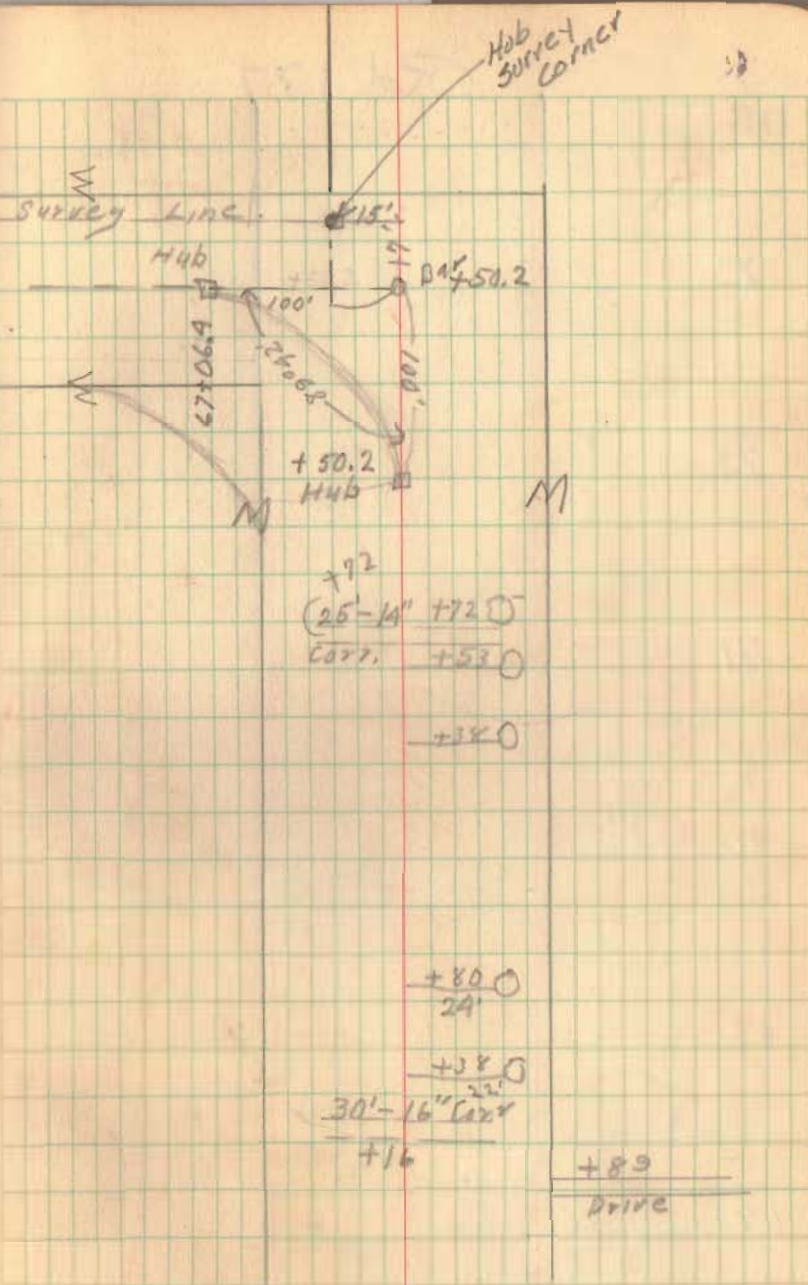 Hub
Survey
Corner
Survey Line.
15'
17
Hub
Bar +50.2
100'
100'
67+06.9
+50.2
Hub
+72
25'-14" +72
Corr. +53
+38
+80
24'
+38
22'
30'-16" Corr
+16
+89
Drive